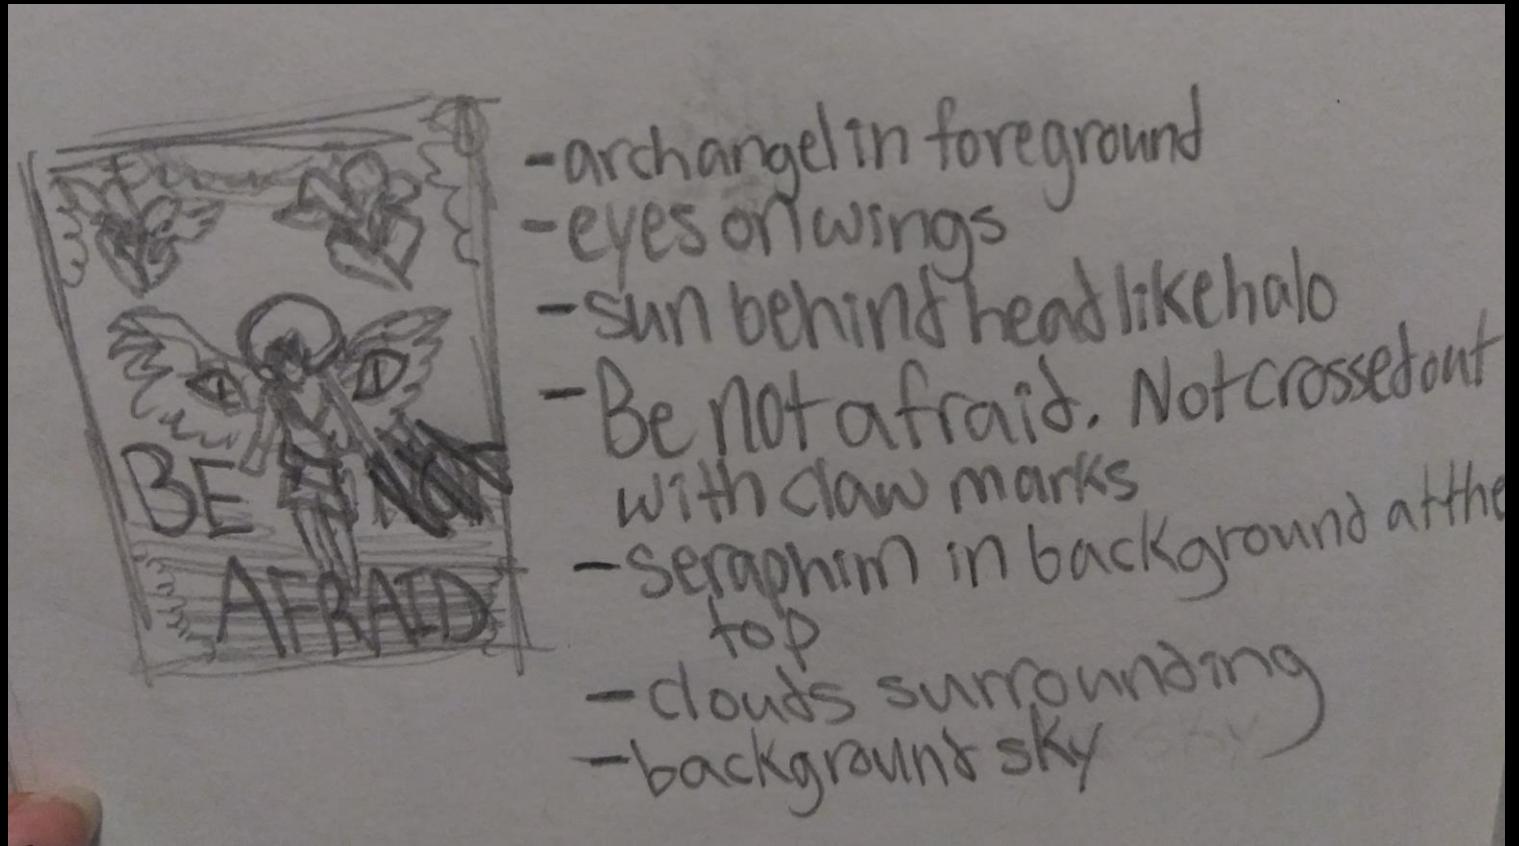 BE NOT
AFRAID
-archangel in foreground
-eyes on wings
-sun behind head like halo
-Be not afraid. Not crossed out
with claw marks
-seraphim in background at the
top
-clouds surrounding
-background sky